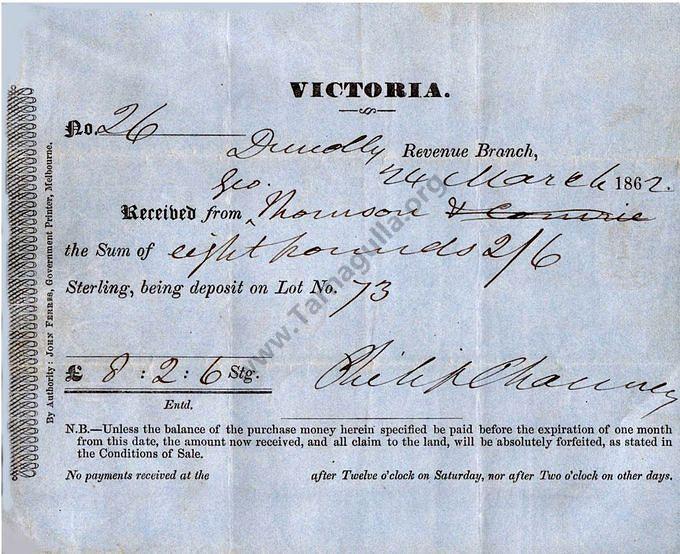 VICTORIA.
No. 26
Dunolly Revenue Branch,
24 March 1862.
Geo.
Received from ^ Thomson & Comrie
the Sum of eight pounds 2/6
Sterling, being deposit on Lot No. 73
£ 8 : 2 : 6 Stg.
Philip Chauncy
Entd.
N.B.—Unless the balance of the purchase money herein specified be paid before the expiration of one month
from this date, the amount now received, and all claim to the land, will be absolutely forfeited, as stated in
the Conditions of Sale.
No payments received at the after Twelve o'clock on Saturday, nor after Two o'clock on other days.
By Authority: JOHN FERRES, Government Printer, Melbourne.
www.Tarnagulla.org